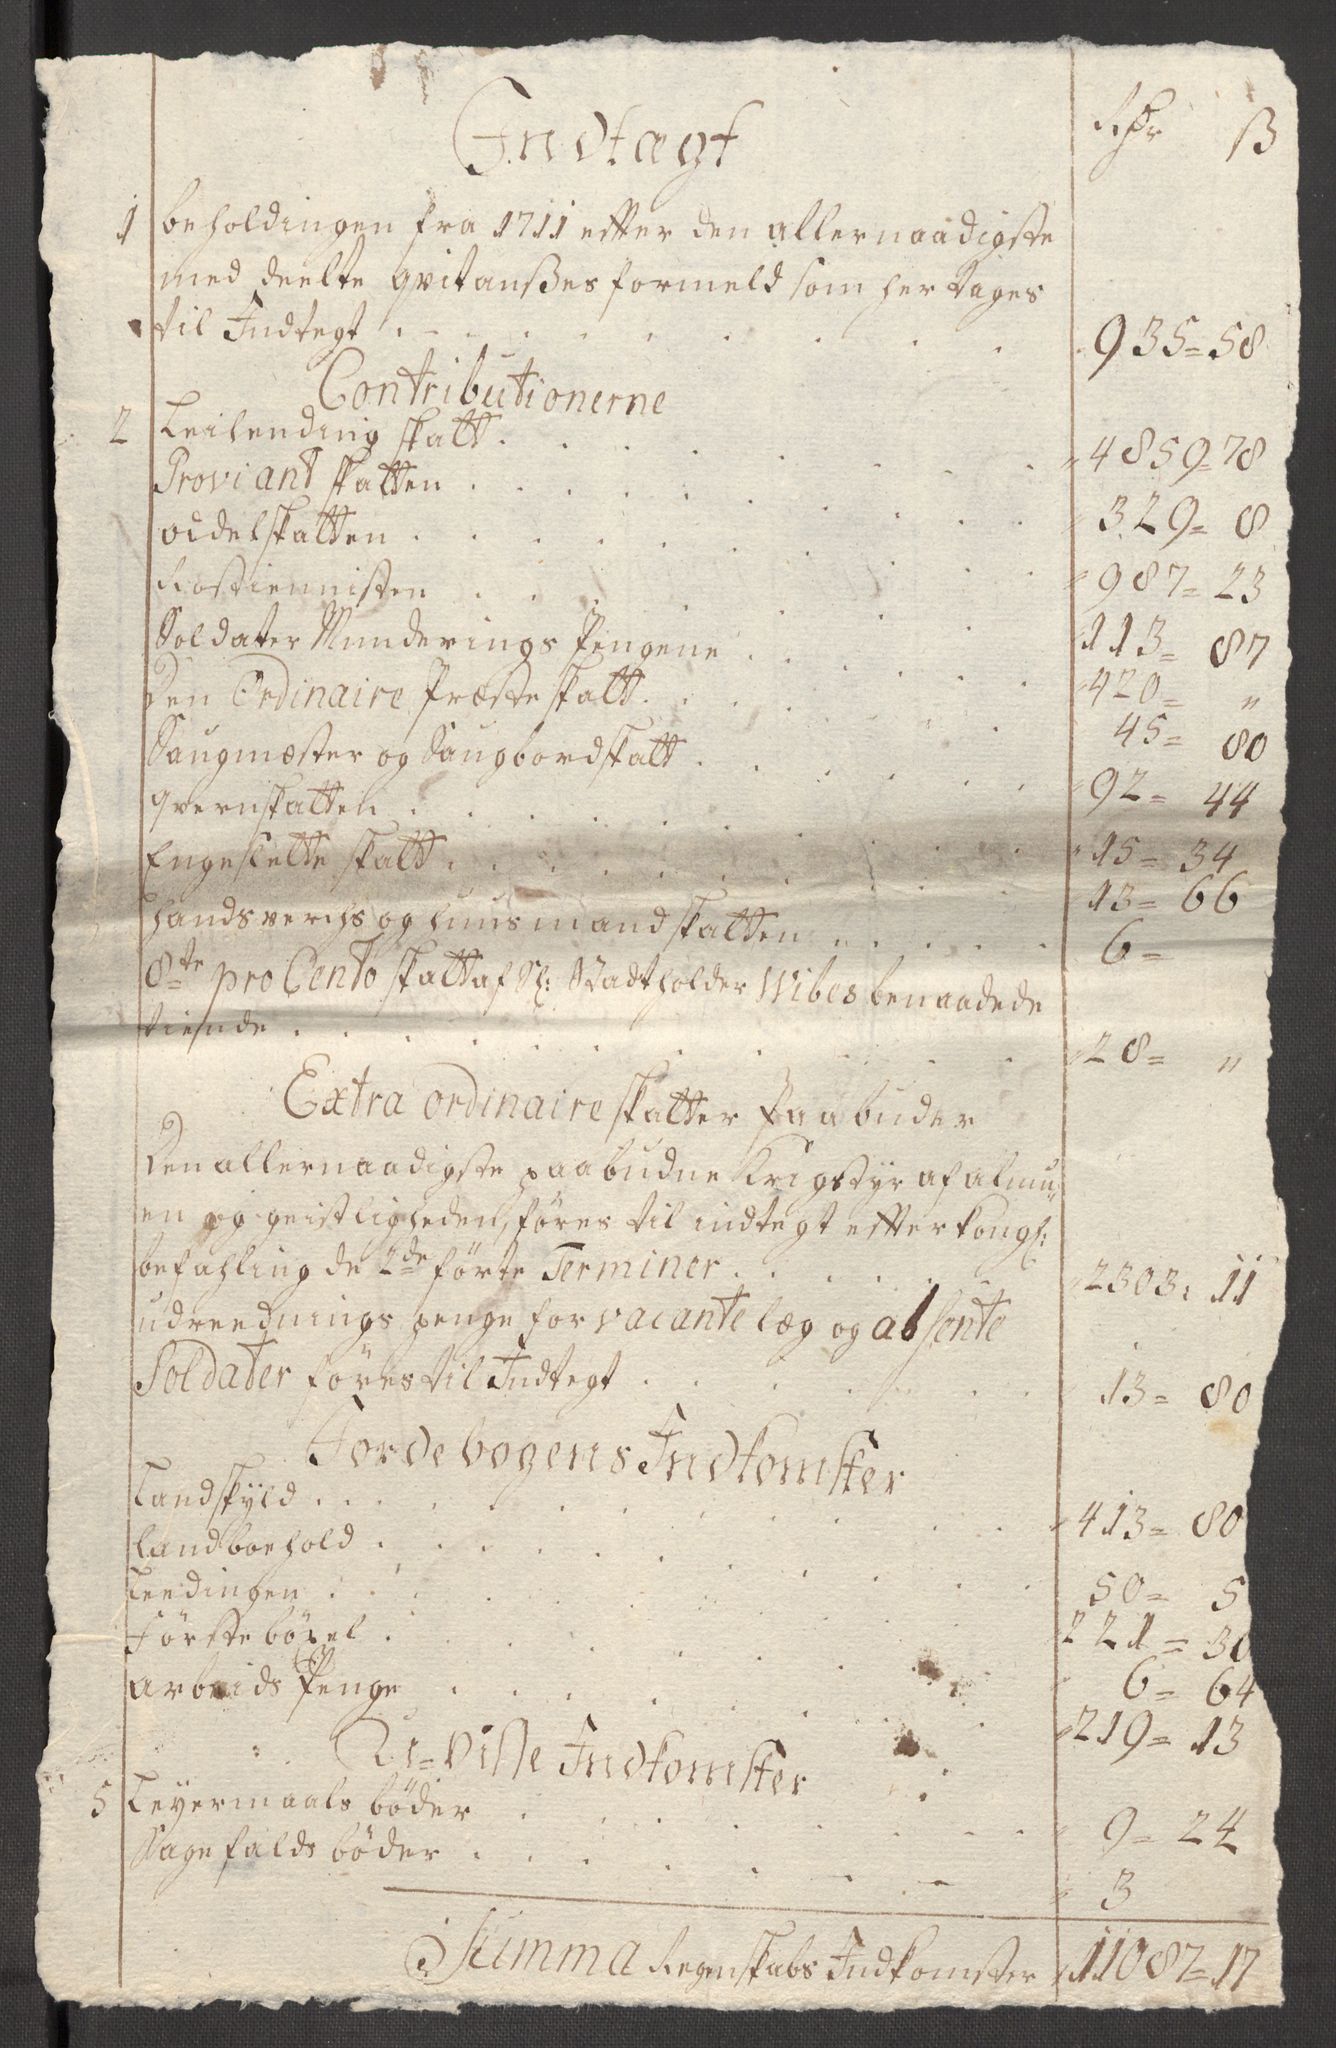 Indtægt Rdr ß
1 beholdingen fra 1711 efter den allernaadigste
med deelte qvitanßes formeld som her tages
til Indtegt . . . 935 = 58
Contributionerne
2 Leilending skatt . . . 4859 = 78
Proviant skatten . . . 329 = 8
odelskatten . . . 987 = 23
Rostiennisten . . . 113 = 87
Soldater Munderings Pengene . . . 420 = "
Den Ordinaire Præste skatt . . . 45 = 80
Saugmæster og Saugbordskatt . . . 92 = 44
qvernskatten . . . 15 = 34
Engeslette skatt . . . 13 = 66
handsverchs og huusmandskatten . . . 6 =
8te pro Cento skatt af Sl: Stadtholder Wibes benaadede
tiende . . . 28 = "
Extra ordinaire skatter Paabuder
Den allernaadigste paabudne Krigstyr af almu„
en og geistligheden, føres til indtegt efter kongl:
befahling de 2de førte Terminer . . . 2303 = 11
udreednings penge for vacante læg og absente
Soldater føres til Indtegt . . . 13 = 80
Jordebogens Indkomster
Landskyld . . . 413 = 80
landboehold . . . 50 = 5
Leedingen . . . 221 = 30
Førstebøxel . . . 6 = 64
arbeids Penge . . . 219 = 13
U=visse Indkomster
5 Leyermaals bøder . . . 9 = 24
Sagefalds bøder . . . 3
Summa Regenskabs Indkomster 11087 = 17